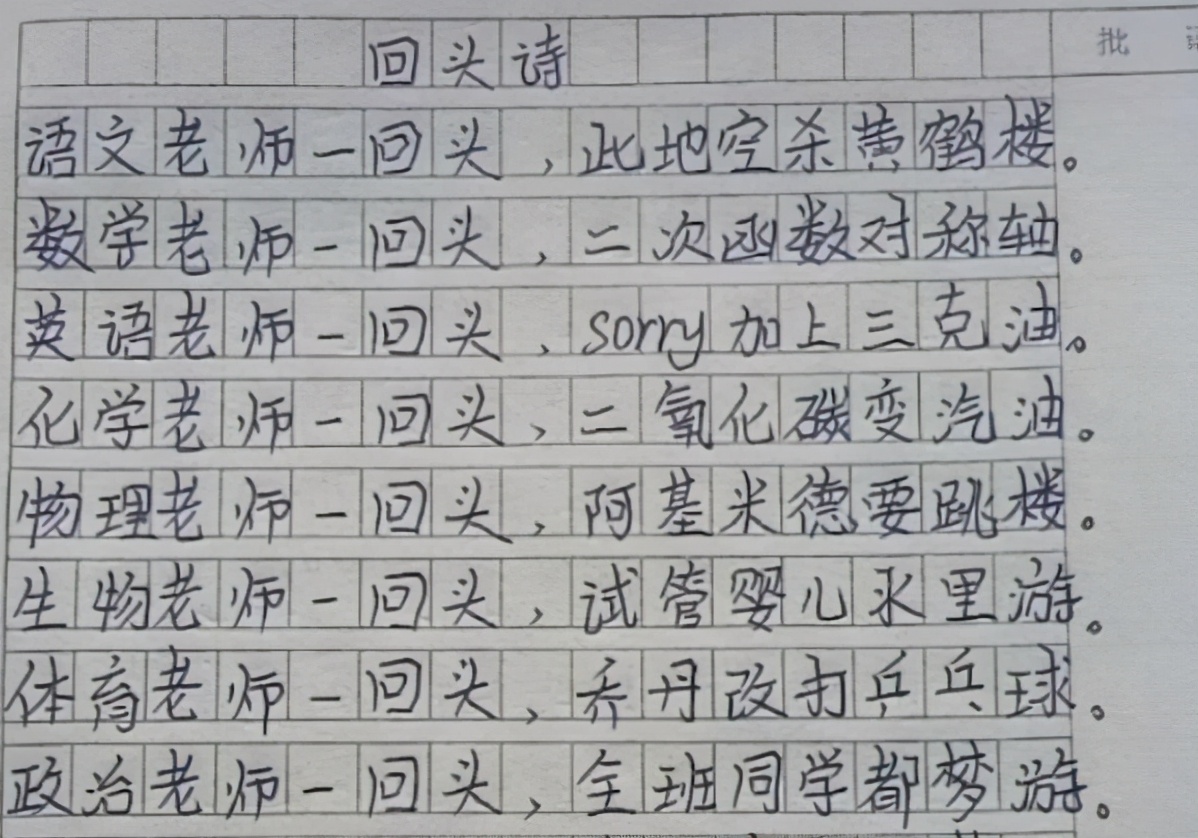 回头诗
批
语文老师一回头,此地空杀黄鹤楼。
数学老师一回头,二次函数对称轴。
英语老师一回头,sorry加上三克油。
化学老师一回头,二氧化碳变汽油。
物理老师一回头,阿基米德要跳楼。
生物老师一回头,试管婴儿水里游。
体育老师一回头,乔丹改打乒乓球。
政治老师一回头,全班同学都梦游。